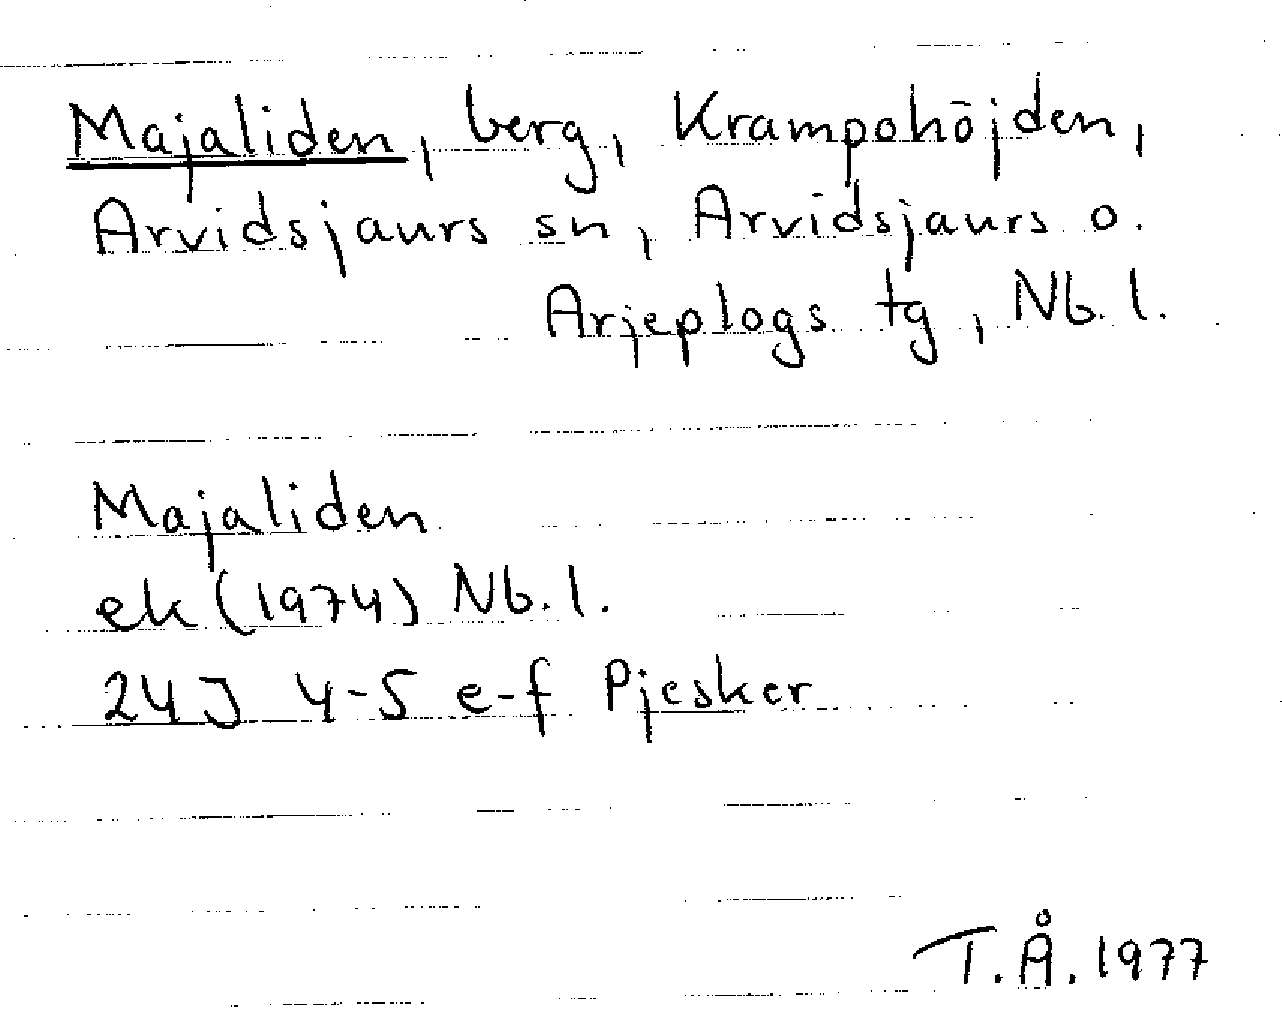 Majaliden, berg, Krampohöjden,
Arvidsjaurs sn, Arvidsjaurs o.
Arjeplogs tg, Nb. l.
Majaliden
ek (1974) Nb. l.
24J 4-5 e-f Pjesker
T.Å. 1977